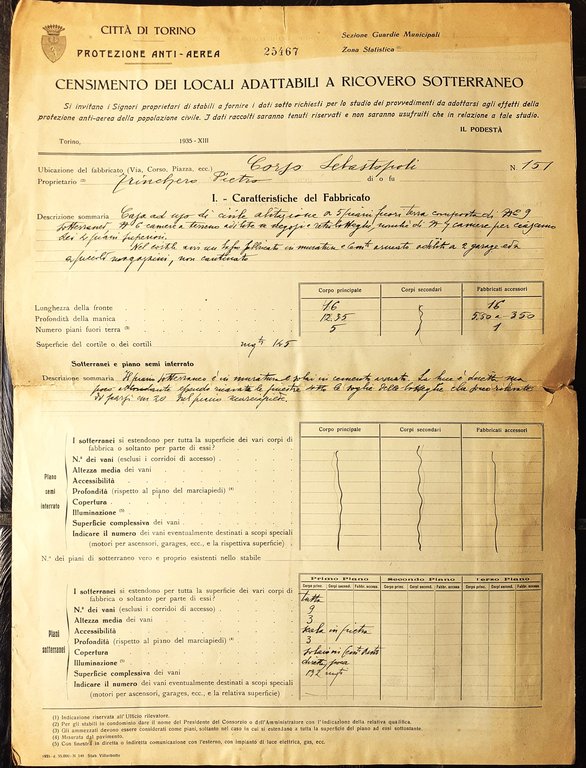 CITTÀ DI TORINO
PROTEZIONE ANTI-AEREA
25467
Sezione Guardie Municipali
Zona Statistica
CENSIMENTO DEI LOCALI ADATTABILI A RICOVERO SOTTERRANEO
Si invitano i Signori proprietari di stabili a fornire i dati sotto richiesti per lo studio dei provvedimenti da adottarsi agli effetti della
protezione anti-aerea della popolazione civile. I dati raccolti saranno tenuti riservati e non saranno usufruiti che in relazione a tale studio.
IL PODESTÀ
Torino, 1935-XIII
Ubicazione del fabbricato (Via, Corso, Piazza, ecc.) Corso Sebastopoli N. 151
Proprietario (2) Trinchero Pietro di o fu
I. - Caratteristiche del Fabbricato
Descrizione sommaria Casa ad uso di civile abitazione a 5 piani fuori terra composta di N° 9
sotterranei, N° 6 camere a terreno retrobottega, nonchè di N° 9 camere per ciascuno
dei piani superiori.
Nel cortile in muratura e cemento armato a 2 garage ed a
piccoli magazzini, non cantinato
Corpo principale Corpi secondari Fabbricati accessori
Lunghezza della fronte 16 16
Profondità della manica 12.35 5,50 e 3.50
Numero piani fuori terra (3) 5 1
Superficie del cortile o dei cortili 145
Sotterranei e piano semi interrato
Descrizione sommaria Il piano sotterraneo è in muratura e solai in cemento armato. La luce è diretta, ma
poco le finestre sotto le soglie delle botteghe
20 del piano
Corpo principale Corpi secondari Fabbricati accessori
Piano semi interrato
I sotterranei si estendono per tutta la superficie dei vari corpi di
fabbrica o soltanto per parte di essi?
N.° dei vani (esclusi i corridoi di accesso)
Altezza media dei vani
Accessibilità
Profondità (rispetto al piano del marciapiedi) (4)
Copertura
Illuminazione (5)
Superficie complessiva dei vani
Indicare il numero dei vani eventualmente destinati a scopi speciali
(motori per ascensori, garages, ecc., e la rispettiva superficie)
N.° dei piani di sotterraneo vero e proprio esistenti nello stabile
Primo Piano Secondo Piano Terzo Piano
Corpo princ. Corpi second. Fabbr. access. Corpo princ. Corpi second. Fabbr. access. Corpo princ. Corpi second. Fabbr. access.
Piani sotterranei
I sotterranei si estendono per tutta la superficie dei vari corpi di
fabbrica o soltanto per parte di essi? tutta
N.° dei vani (esclusi i corridoi di accesso) 9
Altezza media dei vani 3
Accessibilità scala in pietra
Profondità (rispetto al piano del marciapiedi) (4) 3
Copertura solai in
Illuminazione (5) diretta poca
Superficie complessiva dei vani 132
Indicare il numero dei vani eventualmente destinati a scopi speciali
(motori per ascensori, garages, ecc., e la relativa superficie)
(1) Indicazione riservata all'Ufficio rilevatore.
(2) Per gli stabili in condominio dare il nome del Presidente del Consorzio o dell'Amministratore con l'indicazione della relativa qualifica.
(3) Gli ammezzati devono essere considerati come piani, soltanto nel caso in cui si estendano a tutta la superficie del piano ad essi sottostante.
(4) Misurata dal pavimento.
(5) Con finestre in diretta o indiretta comunicazione con l'esterno, con impianto di luce elettrica, gas, ecc.